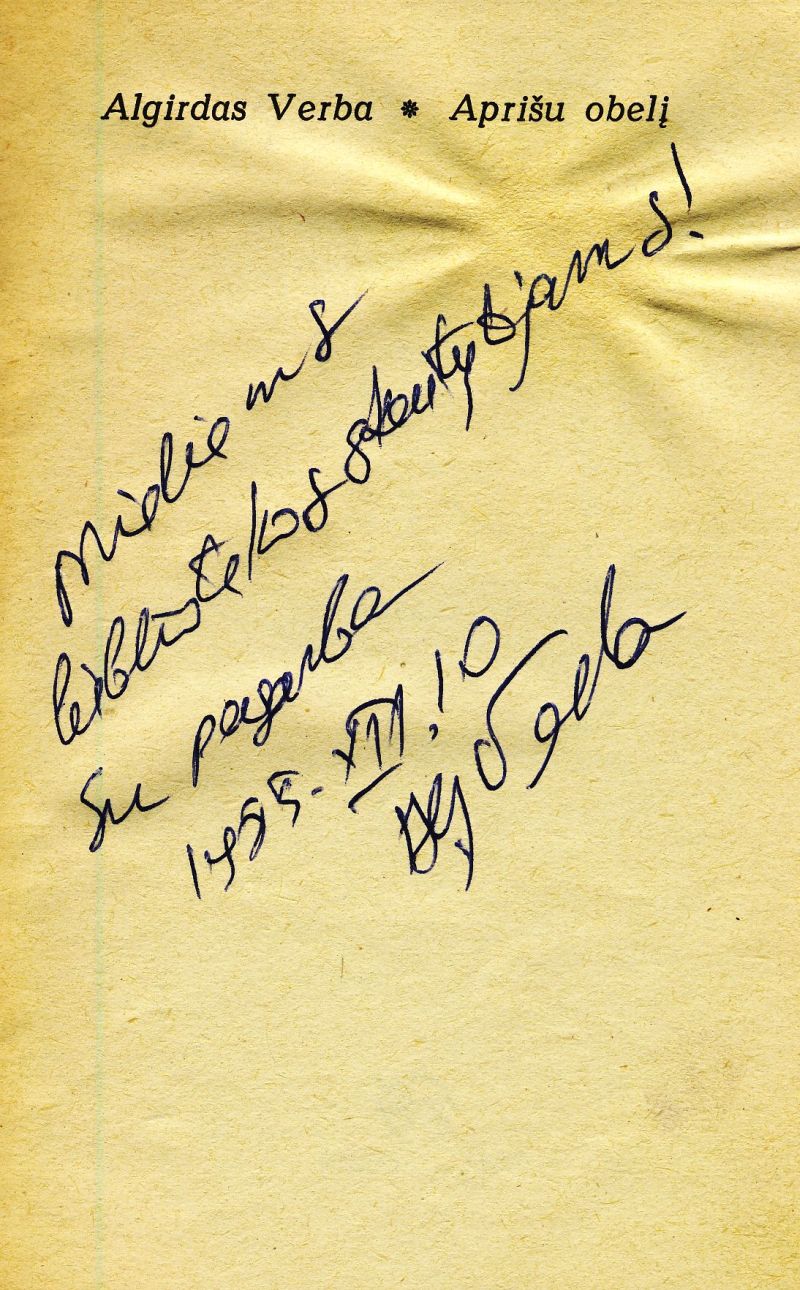 Algirdas Verba * Aprišu obelį
Mieliems
bibliotekos skaitytojams!
Su pagarba
XII.10
A Verba